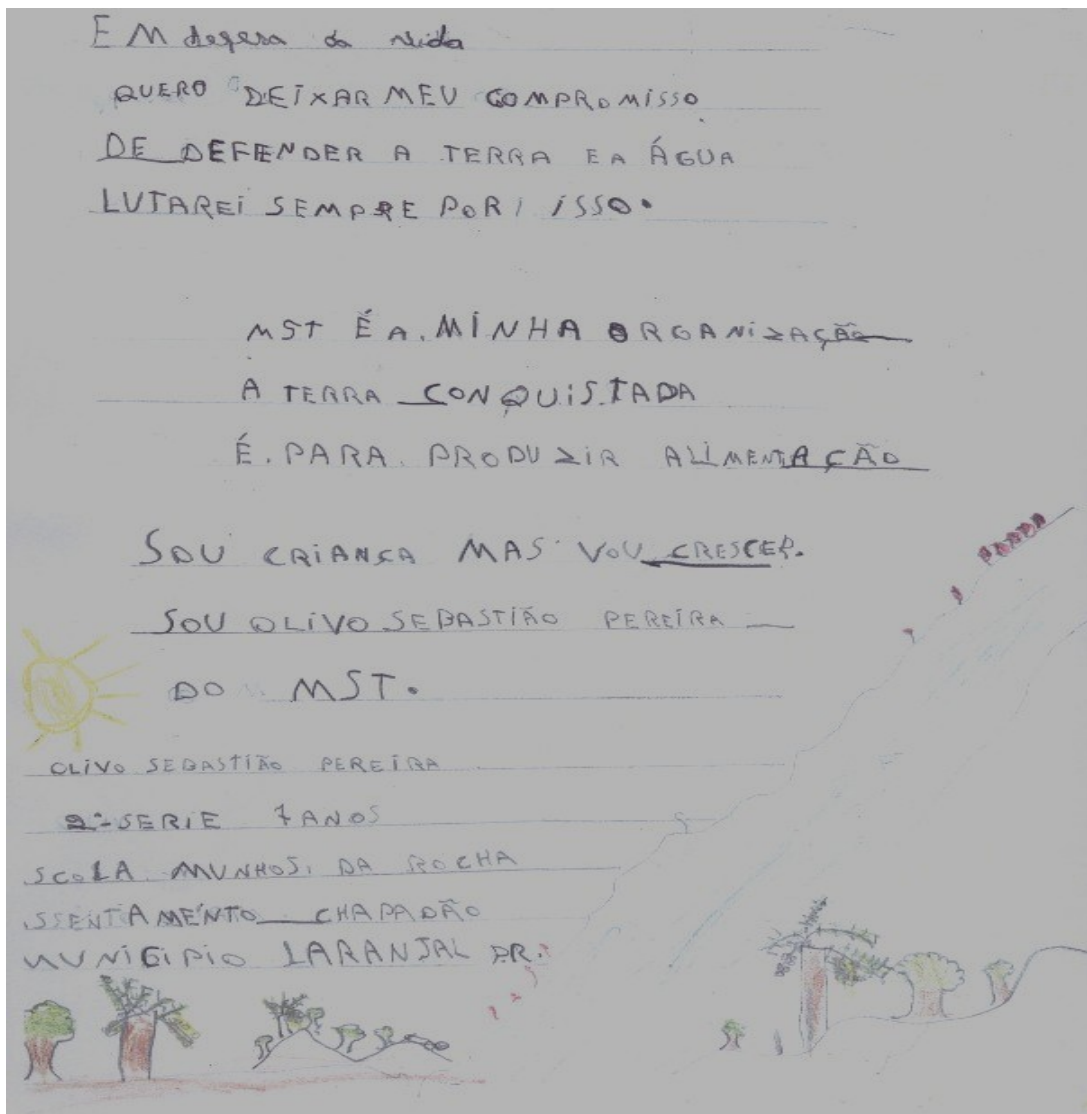 EM defesa da vida
QUERO DEIXAR MEU COMPROMISSO
DE DEFENDER A TERRA E A ÁGUA
LUTAREI SEMPRE POR ISSO.
MST É A. MINHA ORGANIZAÇÃO
A TERRA CONQUISTADA
É. PARA. PRODUZIR ALIMENTAÇÃO
SOU CRIANÇA MAS VOU CRESCER.
SOU OLIVO SEBASTIÃO PEREIRA
DO MST.
OLIVO SEBASTIÃO PEREIRA
2ª SERIE 7 ANOS
SCOLA MUNHOS. DA ROCHA
SSENTAMENTO CHAPADÃO
MUNICIPIO LARANJAL PR.